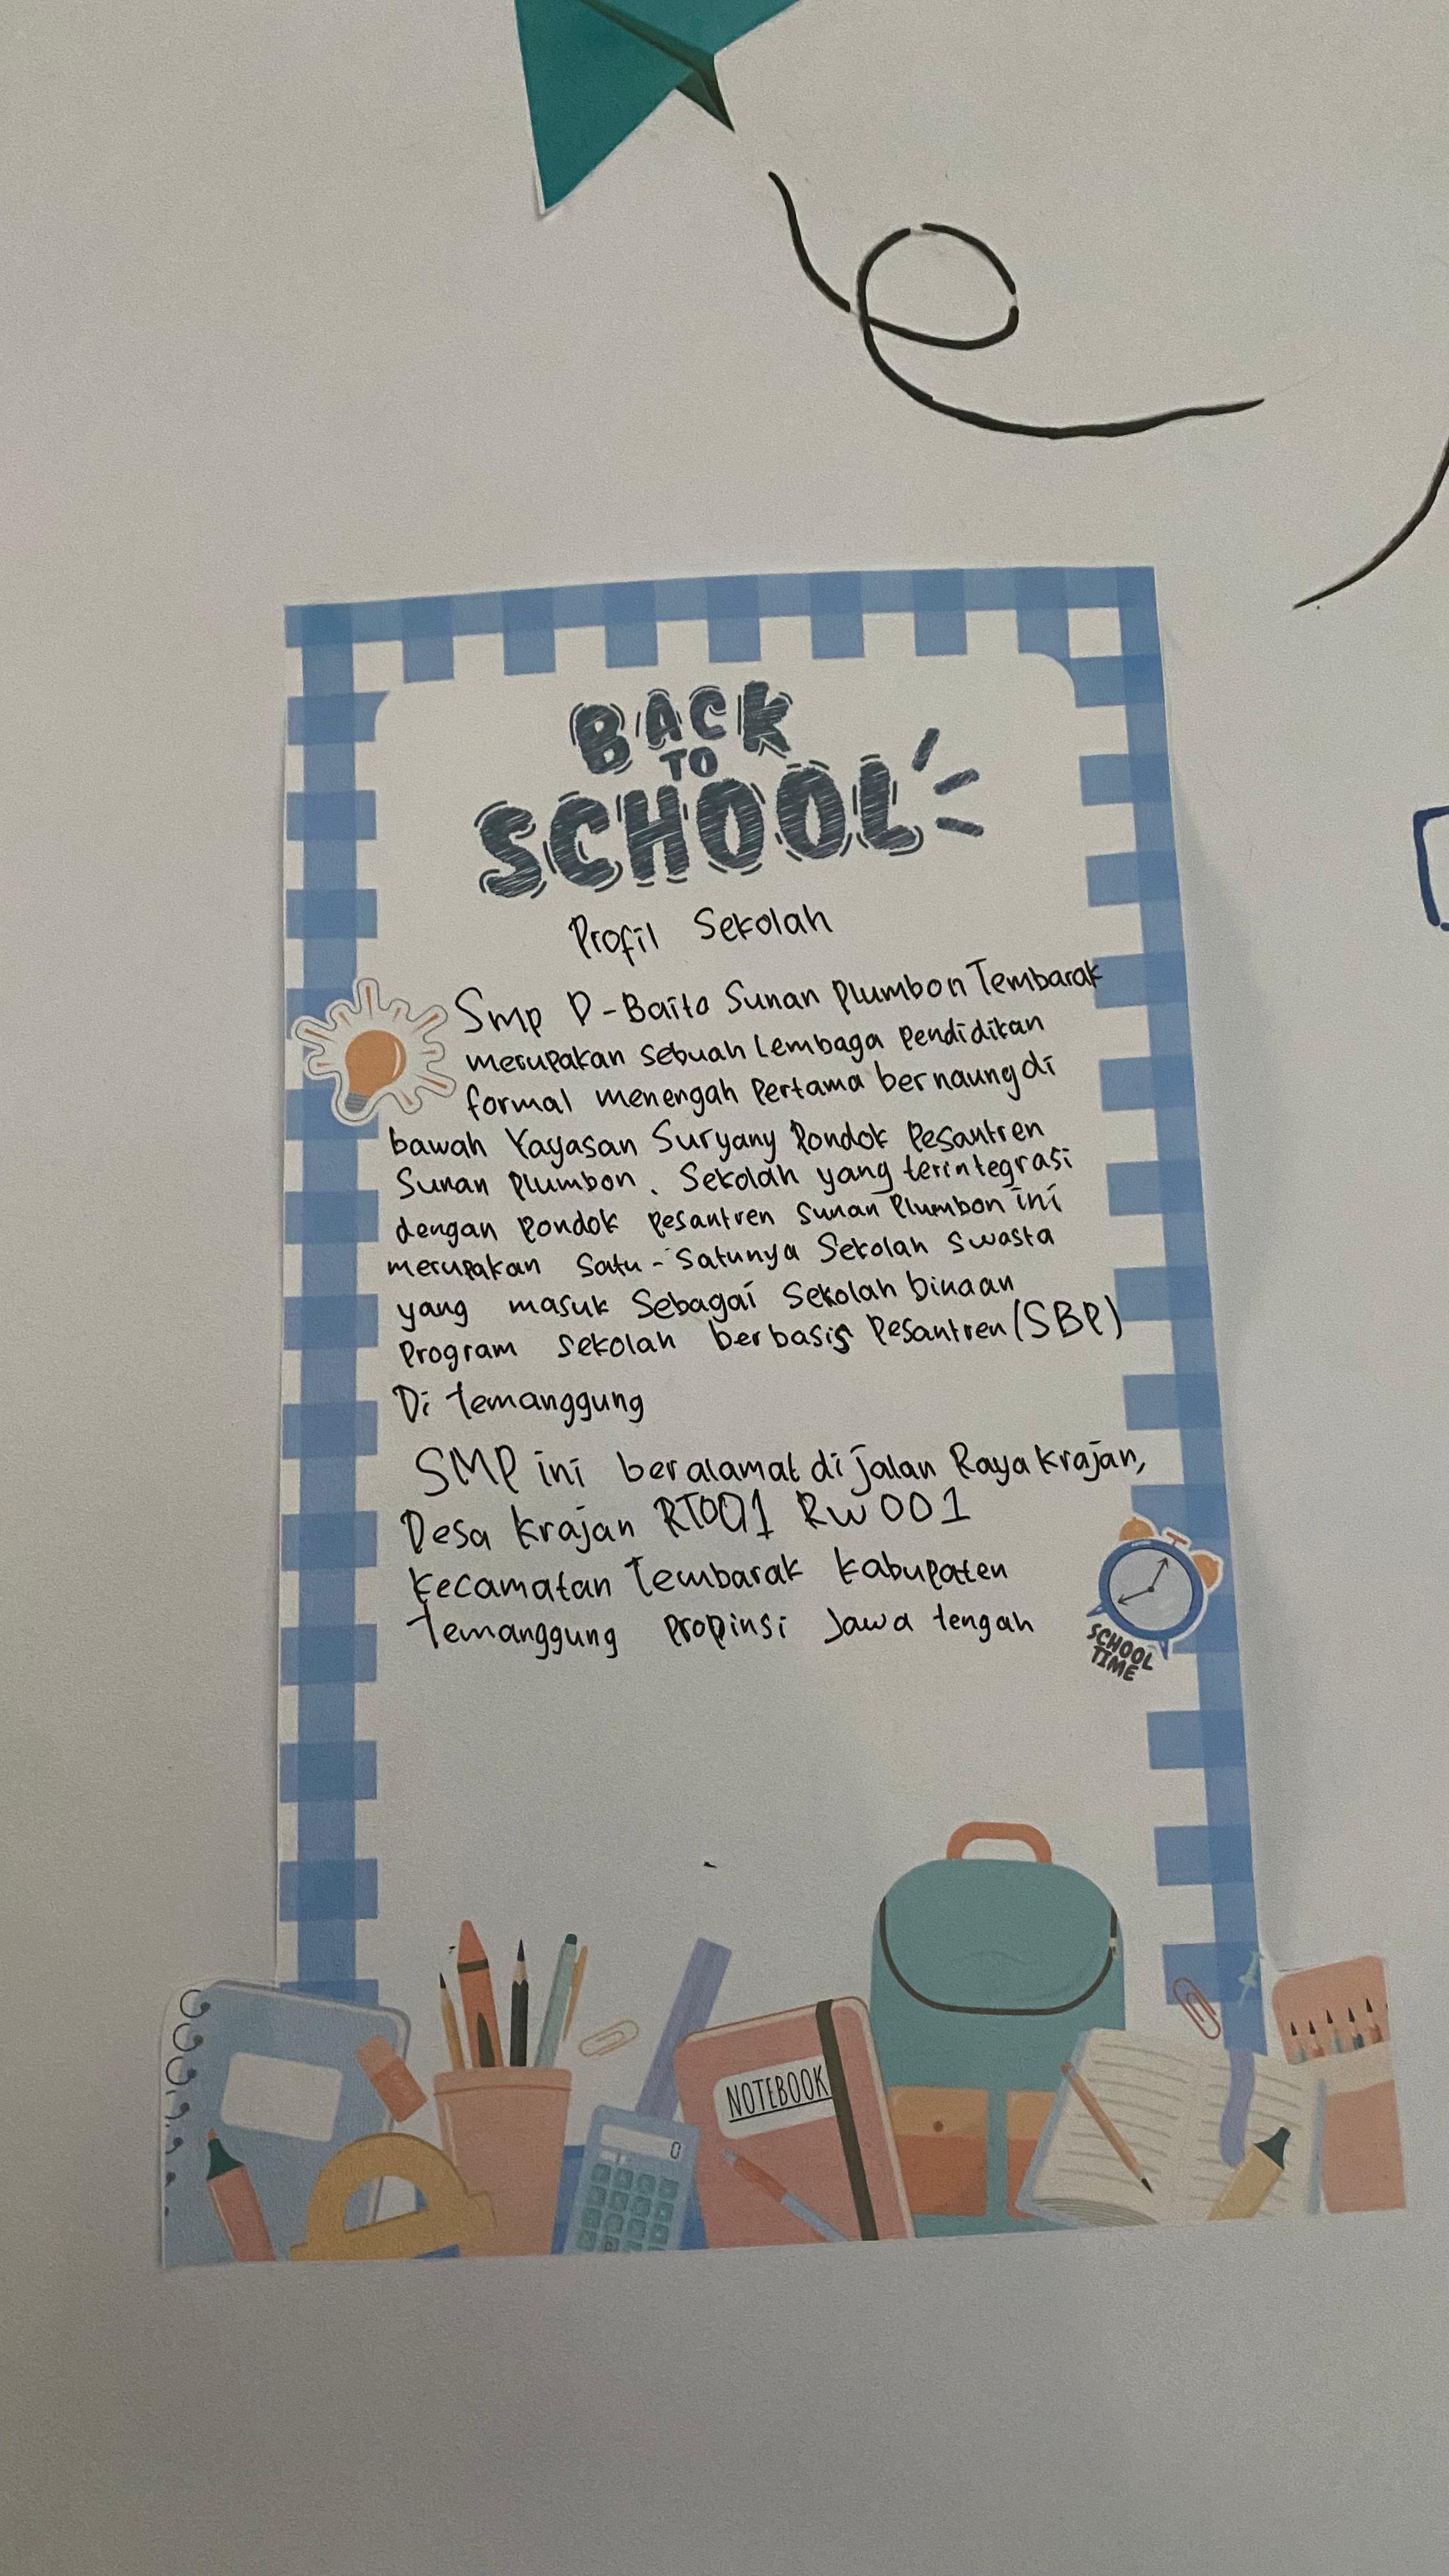 BACK
TO
SCHOOL
Profil Sekolah
Smp D-Baito Sunan Plumbon Tembarak
merupakan sebuah Lembaga Pendidikan
formal menengah Pertama bernaung di
bawah Yayasan Suryany Pondok Pesantren
Sunan Plumbon. Sekolah yang terintegrasi
dengan Pondok Pesantren Sunan Plumbon ini
merupakan Satu-Satunya Sekolah Swasta
yang masuk Sebagai Sekolah binaan
Program sekolah berbasis Pesantren (SBP)
Di temanggung
SMP ini beralamat di jalan Raya Krajan,
Desa Krajan RT001 RW 001
Kecamatan Tembarak Kabupaten
Temanggung Propinsi Jawa tengah
SCHOOL
TIME
NOTEBOOK
0